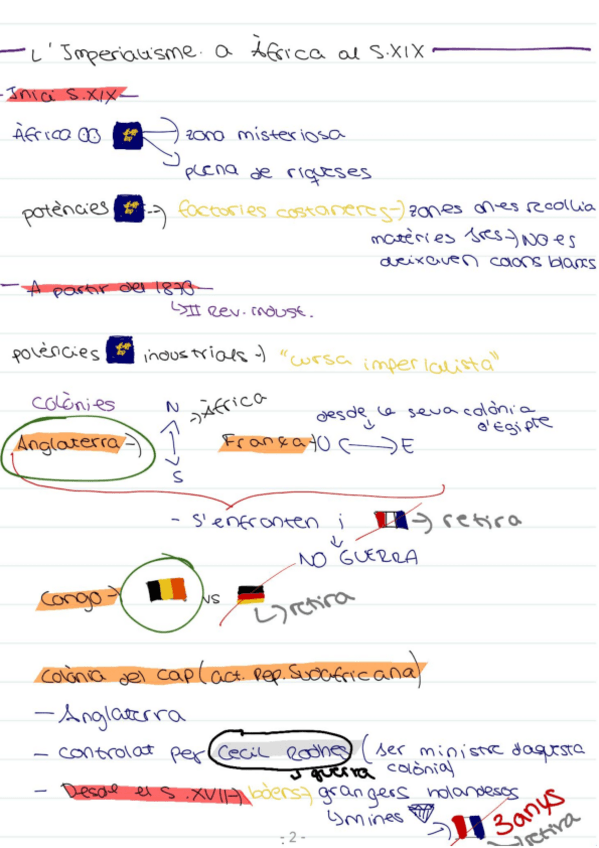 L'Imperialisme a Àfrica al S.XIX
Inici S.XIX
Àfrica → zona misteriosa
→ plena de riqueses
potències → factories costaneres → zones on es recollia
matèries 1res → NO es
deixaven colons blancs
A partir del 1870
↳ II Rev. indust.
potències industrials → "cursa imperialista"
colònies
N → Àfrica
desde la seva colònia
d'Egipte
Anglaterra →
França → O ↔ E
S
- S'enfronten i → retira
↓
NO GUERRA
Congo → vs
↳ retira
Colònia del Cap (act. Rep. Sudafricana)
- Anglaterra
- controlat per Cecil Rodhes (1er ministre d'aquesta
colònia)
↓ guerra
- Desde el S.XVII → bòers → grangers holandesos
↳ mines
→ 3 anys
→ retira
- 2 -